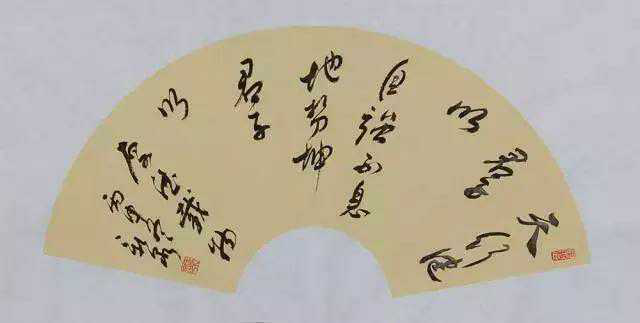 天行健
君子
以
自强不息
地势坤
君子
以
厚德载物